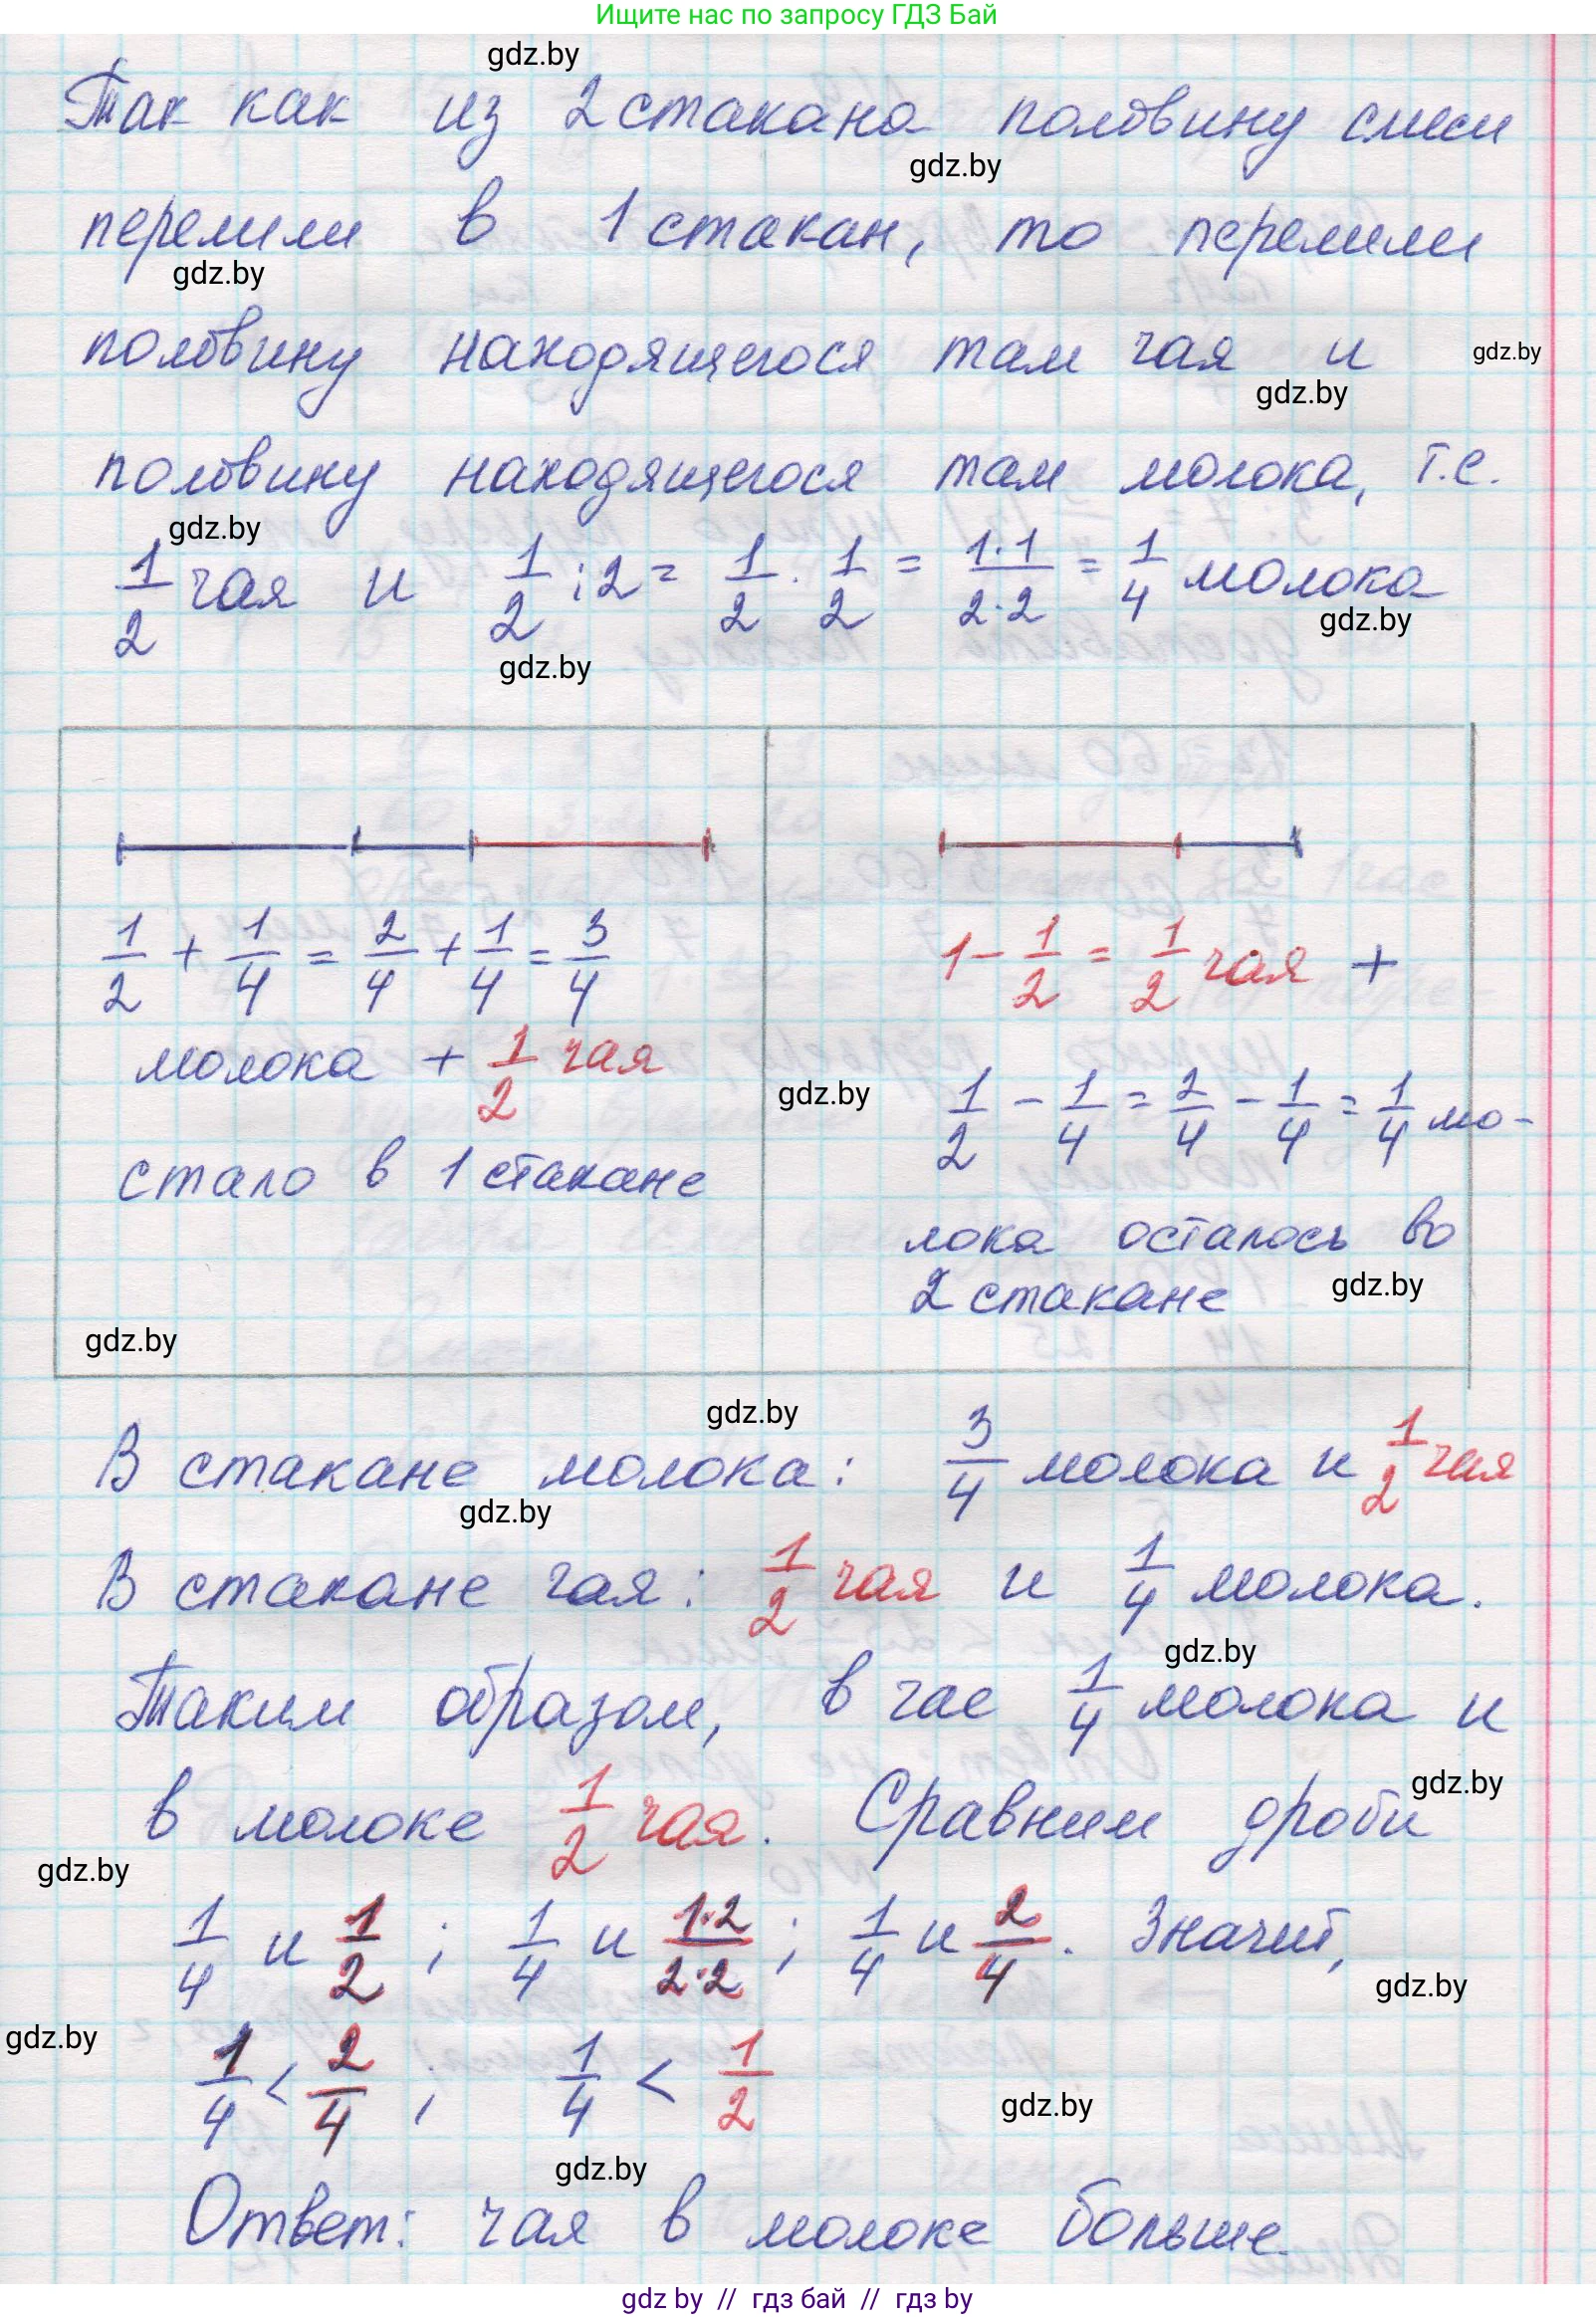 Ищите нас по запросу ГДЗ Бай
gdz.by
Так как из 2 стакана половину смеси
gdz.by
перелили в 1 стакан, то перелили
gdz.by
половину находящегося там чая и
gdz.by
gdz.by
половину находящегося там молока, т.е.
gdz.by
1/2 чая и 1/2 : 2 = 1/2 · 1/2 = 1·1/2·2 = 1/4 молока
gdz.by
gdz.by
1/2 + 1/4 = 2/4 + 1/4 = 3/4
молока + 1/2 чая
стало в 1 стакане
gdz.by
1 - 1/2 = 1/2 чая +
gdz.by
1/2 - 1/4 = 2/4 - 1/4 = 1/4 мо-
лока осталось во
2 стакане
gdz.by
gdz.by
В стакане молока: 3/4 молока и 1/2 чая
gdz.by
В стакане чая: 1/2 чая и 1/4 молока.
gdz.by
Таким образом, в чае 1/4 молока и
gdz.by
в молоке 1/2 чая. Сравним дроби
gdz.by
1/4 и 1/2 ; 1/4 и 1·2/2·2 ; 1/4 и 2/4. Значит,
gdz.by
gdz.by
1/4 < 2/4 ; 1/4 < 1/2
gdz.by
gdz.by
Ответ: чая в молоке больше.
gdz by // гдз бай // гдз by